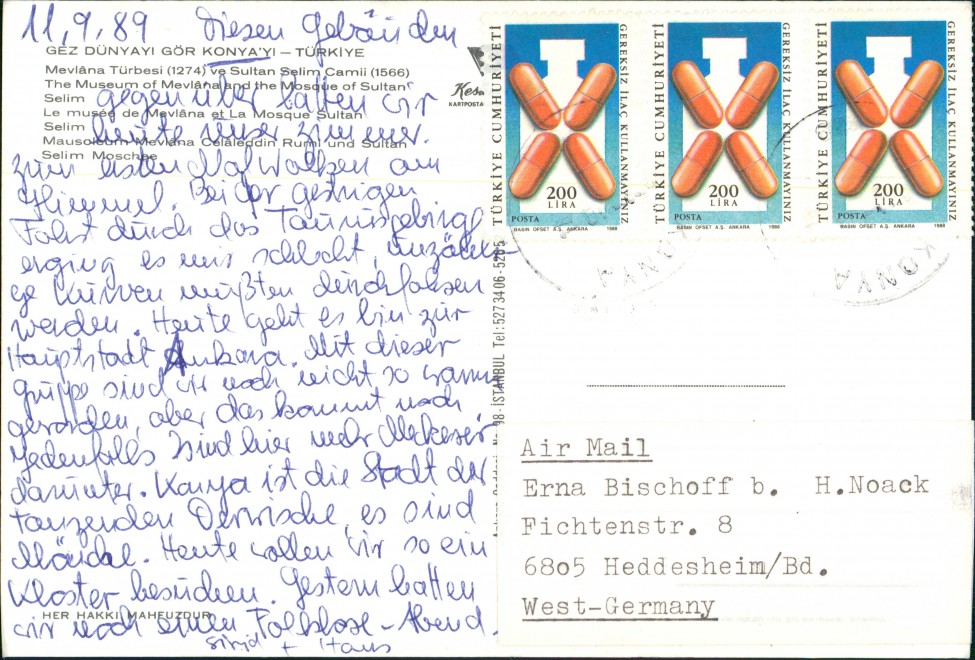 11.9.89 Diesen Gebäuden
GEZ DÜNYAYI GÖR KONYA'YI — TÜRKİYE
Mevlâna Türbesi (1274) ve Sultan Selim Camii (1566)
The Museum of Mevlâna and the Mosque of Sultan
Selim
Le musée de Mevlâna et La Mosque Sultan
Selim
Mausoleum Mevlâna Celâleddin Rumi und Sultan
Selim Moschee
gegenüber hatten wir
heute unser Zimmer.
zum ersten Mal Wolken am
Himmel. Bei der gestrigen
Fahrt durch das Taurusgebirge
erging es mir schlecht, unzähli-
ge Kurven mußten durchfahren
werden. Heute geht es hin zur
Hauptstadt Ankara. Mit dieser
Gruppe sind wir noch nicht so warm
geworden, aber das kommt noch
jedenfalls sind hier mehr Meckerer
darunter. Konya ist die Stadt der
tanzenden Derwische, es sind
Mönche. Heute wollen wir so ein
Kloster besuchen. Gestern hatten
wir noch einen Folklore-Abend.
HER HAKKI MAHFUZDUR
+ Hans
Keskin
KARTPOSTAL
98-İSTANBUL Tel:5273406-52
TÜRKİYE CUMHURİYETİ
GEREKSİZ İLAÇ KULLANMAYINIZ
200
LİRA
POSTA
BASIN OFSET A.Ş. ANKARA 1988
TÜRKİYE CUMHURİYETİ
GEREKSİZ İLAÇ KULLANMAYINIZ
200
LİRA
POSTA
BASIN OFSET A.Ş. ANKARA 1988
TÜRKİYE CUMHURİYETİ
GEREKSİZ İLAÇ KULLANMAYINIZ
200
LİRA
POSTA
BASIN OFSET A.Ş. ANKARA 1988
KONYA
KONYA
Air Mail
Erna Bischoff b. H.Noack
Fichtenstr. 8
6805 Heddesheim/Bd.
West-Germany